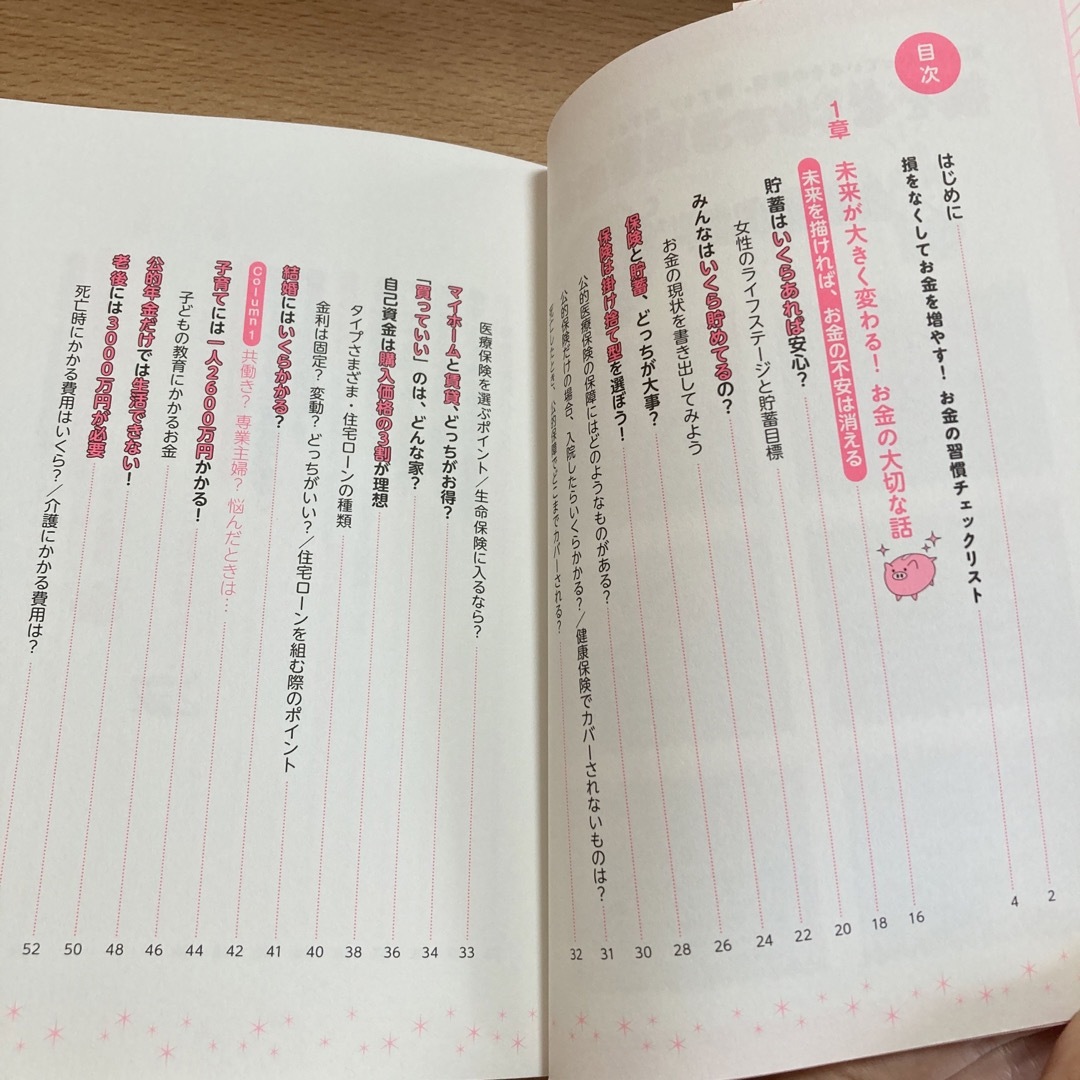 目次
はじめに
損をなくしてお金を増やす! お金の習慣チェックリスト
1章 未来が大きく変わる! お金の大切な話
未来を描ければ、お金の不安は消える
貯蓄はいくらあれば安心?
女性のライフステージと貯蓄目標
みんなはいくら貯めてるの?
お金の現状を書き出してみよう
保険と貯蓄、どっちが大事?
保険は掛け捨て型を選ぼう!
公的医療保険の保障にはどのようなものがある?
公的保険だけの場合、入院したらいくらかかる?/健康保険でカバーされないものは?
死亡したとき、公的保障でどこまでカバーされる?
2 4 16 18 20 22 24 26 28 30 31 32
医療保険を選ぶポイント/生命保険に入るなら?
マイホームと賃貸、どっちがお得?
「買っていい」のは、どんな家?
自己資金は購入価格の3割が理想
タイプさまざま・住宅ローンの種類
金利は固定? 変動? どっちがいい?/住宅ローンを組む際のポイント
結婚にはいくらかかる?
Column 1 共働き? 専業主婦? 悩んだときは…
子育てには一人2600万円かかる!
子どもの教育にかかるお金
公的年金だけでは生活できない!
老後には3000万円が必要
死亡時にかかる費用はいくら?/介護にかかる費用は?
33 34 36 38 40 41 42 44 46 48 50 52